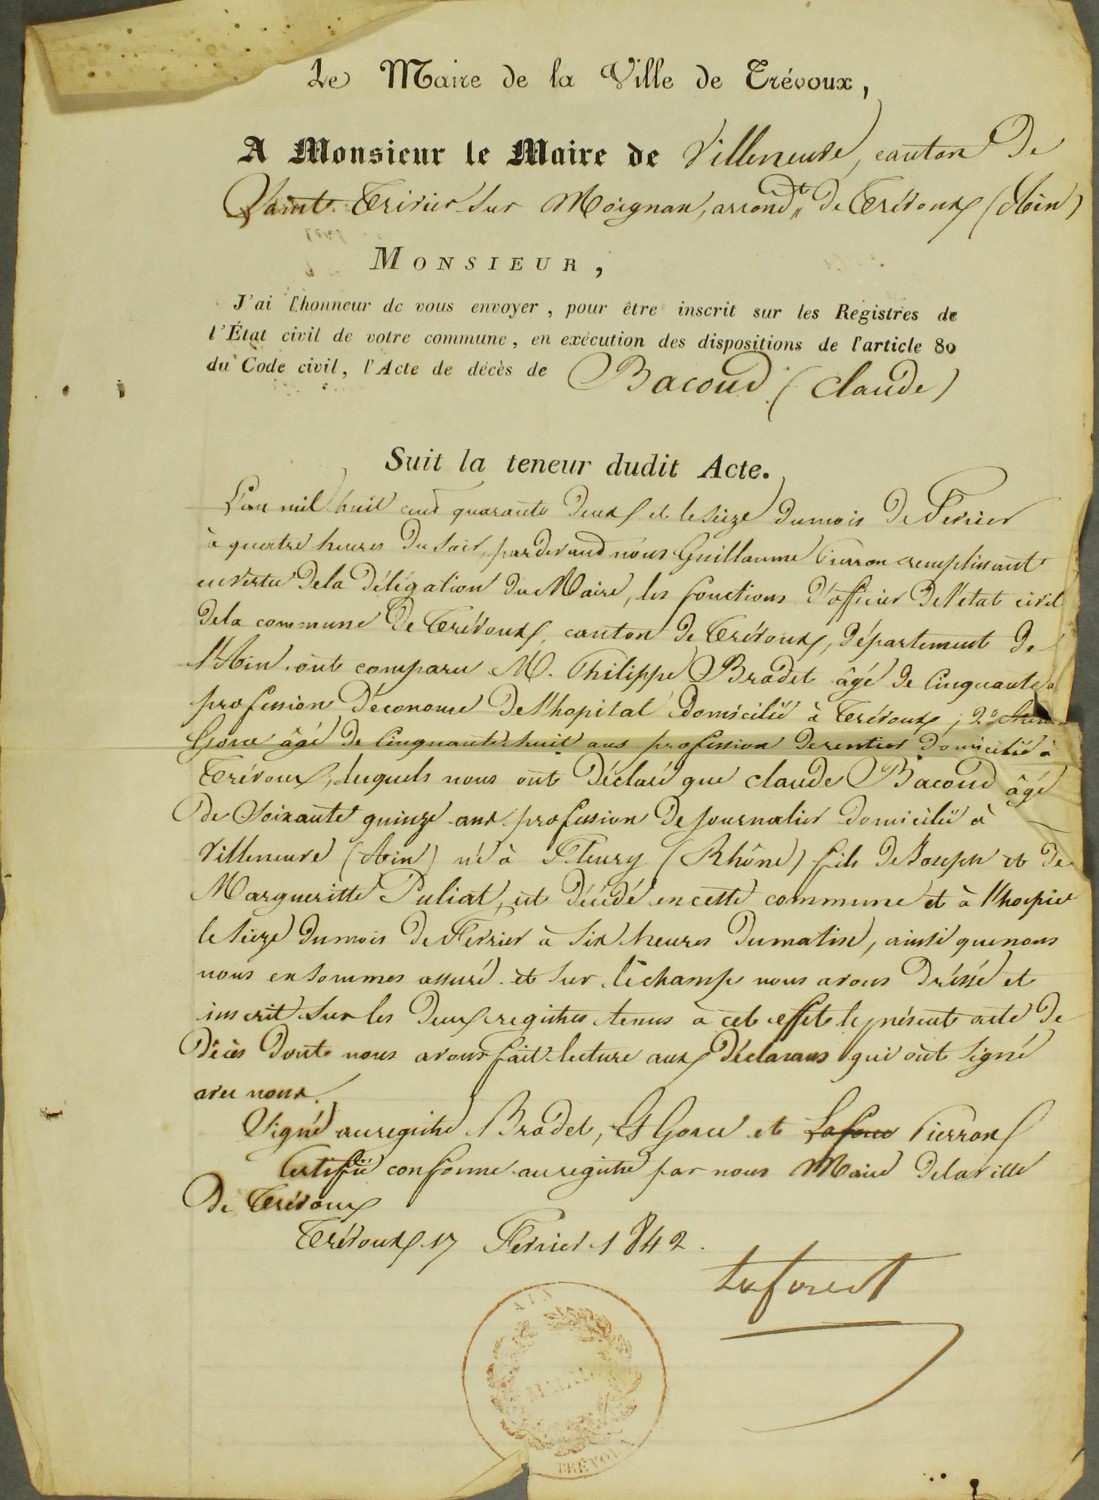 Le Maire de la Ville de Trévoux,
A Monsieur le Maire de Villeneuve, canton De
Saint Trivier sur Moignan, arrond.t De Trévoux (Ain)
MONSIEUR,
J'ai l'honneur de vous envoyer, pour être inscrit sur les Registres de
l'État civil de votre commune, en exécution des dispositions de l'article 80
du Code civil, l'Acte de décès de Bacoud (Claude)
Suit la teneur dudit Acte.
L'an mil huit cent quarante Deux et le seize du mois De Fevrier
à quatre heures Du soir, par devand nous Guillaume Pierron remplissant
en vertu De la Délégation Du Maire, les fonctions D'officier De l'etat civil
De la commune De Trévoux, canton De Trévoux, Département De
l'Ain ont comparu M. Philippe Bradet âgé De Cinquante
profession D'économe De l'hopital Domicilié à Trévoux; 2°
Gorce âgé De Cinquante huit ans profession De rentier Domicilié à
Trévoux, lesquels nous ont Déclaré que Claude Bacoud âgé
De Soixante quinze ans profession De journalier Domicilié à
Villeneuve (Ain) né à Fleury (Rhône) fils De Joseph et De
Margueritte Puliat, est Décédé en cette commune et à l'hospice
le Seize Du mois De Fevrier à Six heures Du matin, ainsi que nous
nous en sommes assuré et Sur le champ nous avons Dréssé et
inscrit Sur les Deux registres tenus à cet effet le présent acte De
Décès Dont nous avons fait lecture aux Déclarans qui ont Signé
avec nous.
Signé au registre Bradet, G Gorce et Laforce Pierron
Certifié conforme au registre par nous Maire De la ville
De Trévoux
Trévoux 17 Fevrier 1842.
Laforest
AIN
MAIRIE
TRÉVOUX